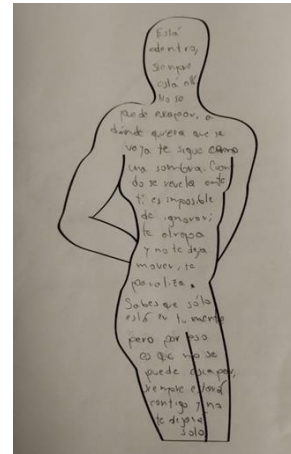 Está
adentro,
siempre
está allí
No se
puede escapar, a
dónde quiera que se
vaya te sigue como
una sombra. Cuan
do se revela ante
ti es imposible
de ignorar;
te atrapa
y no te deja
mover, te
paraliza.
Sabes que sólo
está en tu mente
pero por eso
es que no se
puede escapar,
siempre estará
contigo y no
te dejará
solo